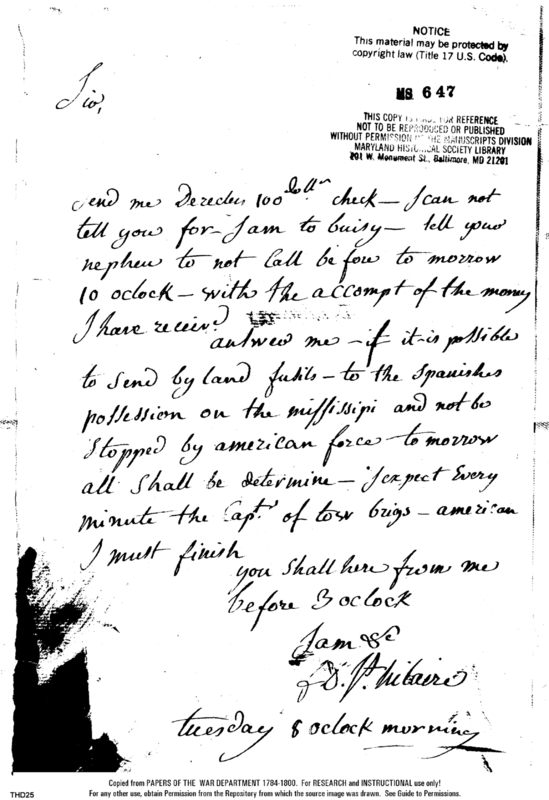 NOTICE
This material may be protected by
copyright law (Title 17 U.S. Code).
MS 647
THIS COPY IS FOR REFERENCE
NOT TO BE REPRODUCED OR PUBLISHED
WITHOUT PERMISSION OF THE MANUSCRIPTS DIVISION
MARYLAND HISTORICAL SOCIETY LIBRARY
201 W. Monument St., Baltimore, MD 21201
Sir,
send me 100 dollrs check – I can not
tell you for – I am to buisy – tell your
nephew to not Call before to morrow
10 oclock – with the accompt of the money
I have received
answer me – if it is possible
to send by land fusils – to the Spanishes
possession on the missisipi and not be
Stopped by american force – to morrow
all Shall be determine – I expect Every
minute the Capt.s of tow brigs – american
I must finish
you Shall here from me
before 3 oclock
I am &c
D. St. hilaire
tuesday 8 oclock morning
Copied from PAPERS OF THE WAR DEPARTMENT 1784-1800. For RESEARCH and INSTRUCTIONAL use only!
THD25
For any other use, obtain Permission from the Repository from which the source image was drawn. See Guide to Permissions.